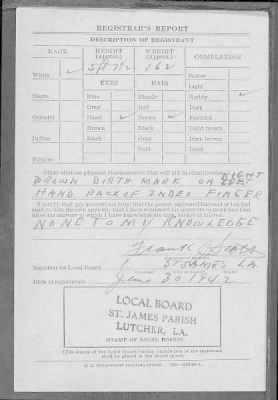 REGISTRAR'S REPORT
DESCRIPTION OF REGISTRANT
RACE HEIGHT (Approx.) WEIGHT (Approx.) COMPLEXION
White ✓ 5 ft 7 1/2 162 Sallow
EYES HAIR Light
Negro Blue Blonde Ruddy ✓
Gray Red Dark
Oriental Hazel ✓ Brown ✓ Freckled
Brown Black Light brown
Indian Black Gray Dark brown
Bald Black
Filipino
Other obvious physical characteristics that will aid in identification RIGHT
BROWN BIRTH MARK ON LEFT
HAND BACK OF INDEX FINGER
I certify that my answers are true; that the person registered has read or has had
read to him his own answers; that I have witnessed his signature or mark and that
all of his answers of which I have knowledge are true, except as follows:
NONE TO MY KNOWLEDGE
Frank
Registrar for Local Board ST JAMES LA
Date of registration June 30 1942
LOCAL BOARD
ST. JAMES PARISH
LUTCHER, LA.
(STAMP OF LOCAL BOARD)
(The stamp of the Local Board having jurisdiction of the registrant
shall be placed in the above space.)
U. S. GOVERNMENT PRINTING OFFICE